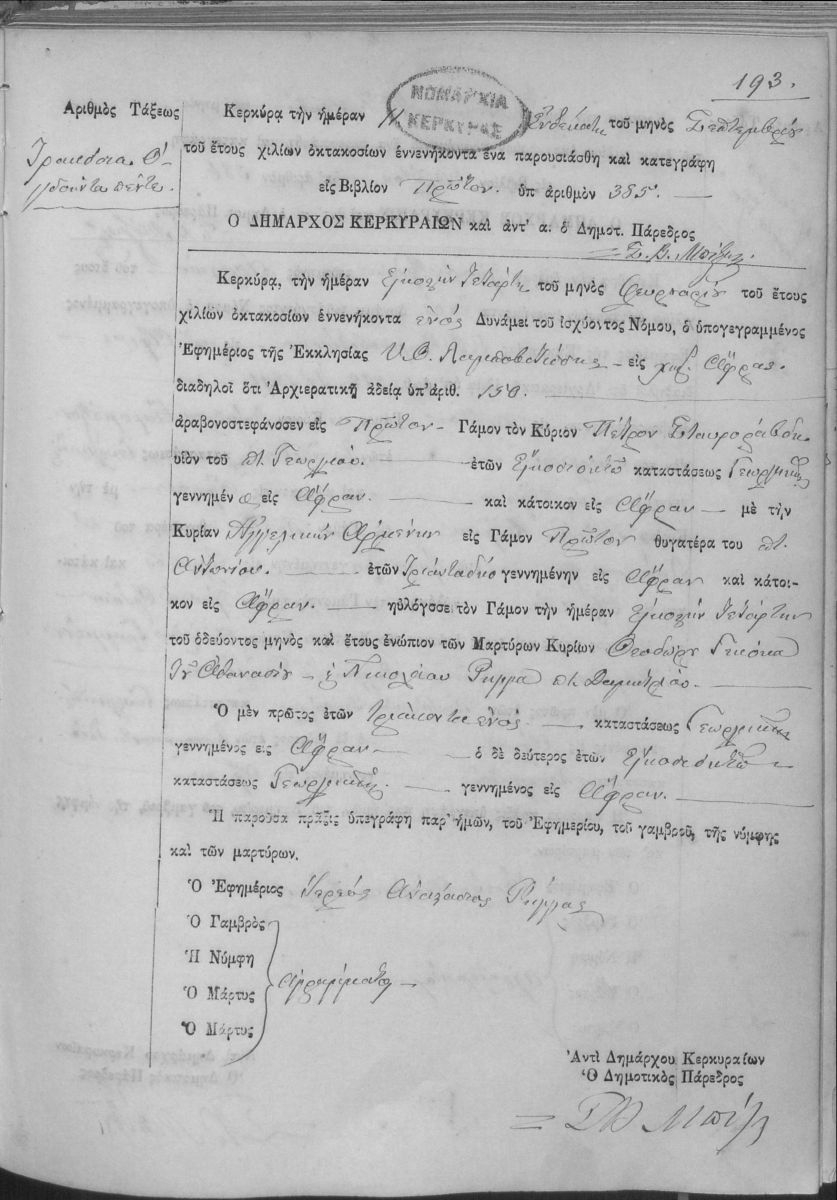 193.
ΝΟΜΑΡΧΙΑ
ΚΕΡΚΥΡΑΣ
Ἀριθμὸς Τάξεως
Τριακόσια Ὀ-
γδοῆντα πέντε.
Κερκύρᾳ τὴν ἡμέραν 11 Ἑνδεκάτη τοῦ μηνὸς Σεπτεμβρίου
τοῦ ἔτους χιλίων ὀκτακοσίων ἐννενήκοντα ἑνα παρουσιάσθη καὶ κατεγράφη
εἰς Βιβλίον Πρῶτον. ὑπ ἀριθμὸν 385. —
Ο ΔΗΜΑΡΧΟΣ ΚΕΡΚΥΡΑΙΩΝ καὶ ἀντ' α. ὁ Δημοτ. Πάρεδρος
Κερκύρᾳ, τὴν ἡμέραν Εἰκοστὴν Τετάρτη τοῦ μηνὸς Φευρουαρίου τοῦ ἔτους
χιλίων ὀκτακοσίων ἐννενήκοντα ἑνός Δυνάμει τοῦ ἰσχύοντος Νόμου, ὁ ὑπογεγραμμένος
Ἐφημέριος τῆς Ἐκκλησίας Υ.Θ. Λαμποβιτίσσης — εἰς χωρ. Ἄφρας.
διαδηλοῖ ὅτι Ἀρχιερατικῇ ἀδείᾳ ὑπ' ἀριθ. 150.
ἀραβονοστεφάνοσεν εἰς Πρῶτον — Γάμον τὸν Κύριον Πέτρον Σταυροράβδη
υἱὸν τοῦ πτ. Γεωργίου. — ἐτῶν Εἰκοσιοκτὼ καταστάσεως Γεωργικῆς
γεννημέν ο εἰς Ἄφραν. — καὶ κάτοικον εἰς Ἄφραν — μὲ τὴν
Κυρίαν Ἀγγελικὴν Ἀρμένη εἰς Γάμον Πρῶτον θυγατέρα του πτ.
Ἀντωνίου. — ἐτῶν Τριάνταδύο γεννημένην εἰς Ἄφραν καὶ κάτοι-
κον εἰς Ἄφραν. — ηὐλόγσσε τὸν Γάμον τὴν ἡμέραν Εἰκοστὴν Τετάρτην
τοῦ ὁδεύοντος μηνὸς καὶ ἔτους ἐνώπιον τῶν Μαρτύρων Κυρίων Θεοδώρου Γκιόκα
Τοῦ Ἀθανασίου — ἐ Νικολάου Ρίγγα πτ. Δημητρίου. —
Ὁ μὲν πρῶτος ἐτῶν Τριάκοντα ἑνός — καταστάσεως Γεωργικῆς
γεννημένος εις Ἄφραν — ὁ δὲ δεύτερος ἐτῶν Εἰκοσιοκτὼ —
καταστάσεως Γεωργικῆς — γεννημένος εἰς Ἄφραν. —
Ἡ παροῦσα πρᾶξις ὑπεγράφη παρ' ἡμῶν, τοῦ Ἐφημερίου, τοῦ γαμβροῦ, τῆς νύμφης
καὶ τῶν μαρτύρων.
Ὁ Ἐφημέριος Ἱερεύς Ἀναστάσιος Ρίγγας
Ὁ Γαμβρὸς
Ἡ Νύμφη
Ὁ Μάρτυς Ἀγράμματοι —
Ὁ Μάρτυς
Ἀντὶ Δημάρχου Κερκυραίων
Ὁ Δημοτικὸς Πάρεδρος